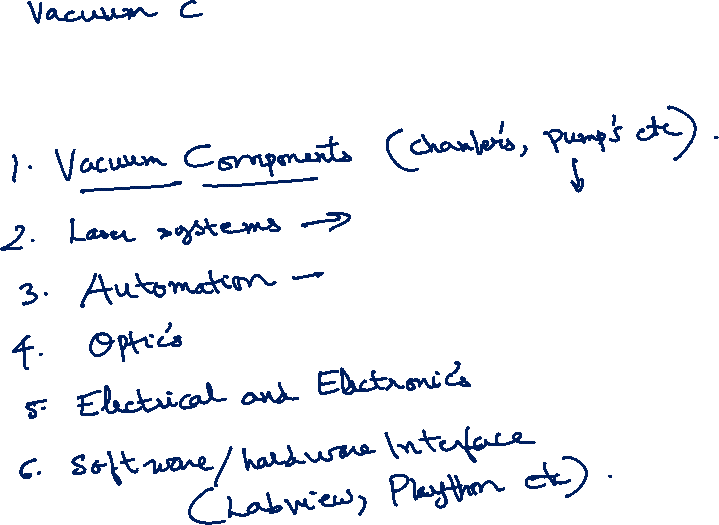 Vacuum C
1. Vacuum Components (Chamber's, pump's etc).
2. Laser systems →
3. Automation –
4. Optics
5. Electrical and Electronics
6. Software/hardware Interface
(Labview, Plaython etc).